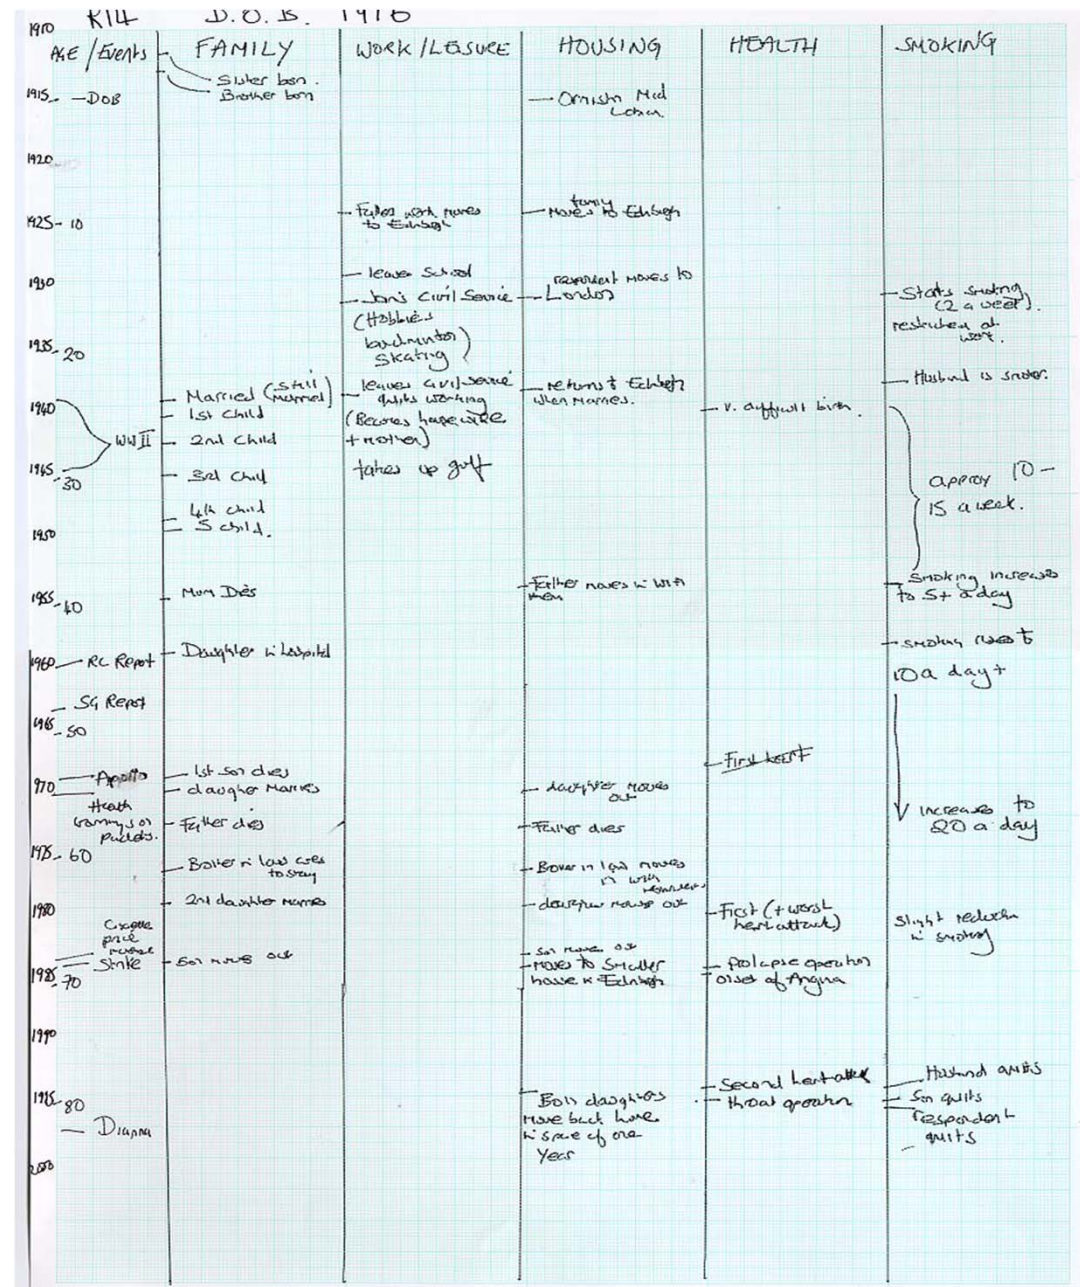 R14 D.O.B. 1916
1910
AGE / Events
FAMILY
WORK / LEISURE
HOUSING
HEALTH
SMOKING
Sister born.
Brother born
1915 - DOB
1920
1925 - 10
1930
1935 - 20
1940
WWII
1945
30
1950
1955 - 40
1960 - RC Report
SG Report
1965
- 50
Apollo
1970
Health
warnings on
packets.
1975 - 60
1980
Cigarette
price
increase
Strike
1985
- 70
1990
1995
- 80
- Dianna
2000
Married (still
married)
1st Child
2nd Child
3rd Child
4th child
5 child.
Mum Dies
Daughter in hospital
1st son dies
daughter Marries
Father dies
Brother in law comes
to stay
2nd daughter marries
son moves out
Father's work moves
to Edinburgh
leaves School
Joins Civil Service
(Hobbies
badminton)
Skating
leaves civil service
quits working
(Becomes housewife
+ mother)
takes up golf
family
moves to Edinburgh
respondent moves to
London
returns to Edinburgh
when marries.
Father moves in with
them
daughter moves
out
Father dies
Brother in law moves
in with
daughter moves out
son moves out
moves to smaller
house in Edinburgh
Both daughters
move back home
in space of one
Year
v. difficult birth.
First heart
First (+ worst
heart attack)
Prolapse operation
onset of Angina
Second heart attack
throat operation
Starts smoking
(2 a week).
restricted at
work.
Husband is smoker.
approx 10 -
15 a week.
Smoking increases
to 5+ a day
smoking rises to
10 a day +
increases to
20 a day
slight reduction
in smoking
Husband quits
Son quits
respondent
quits